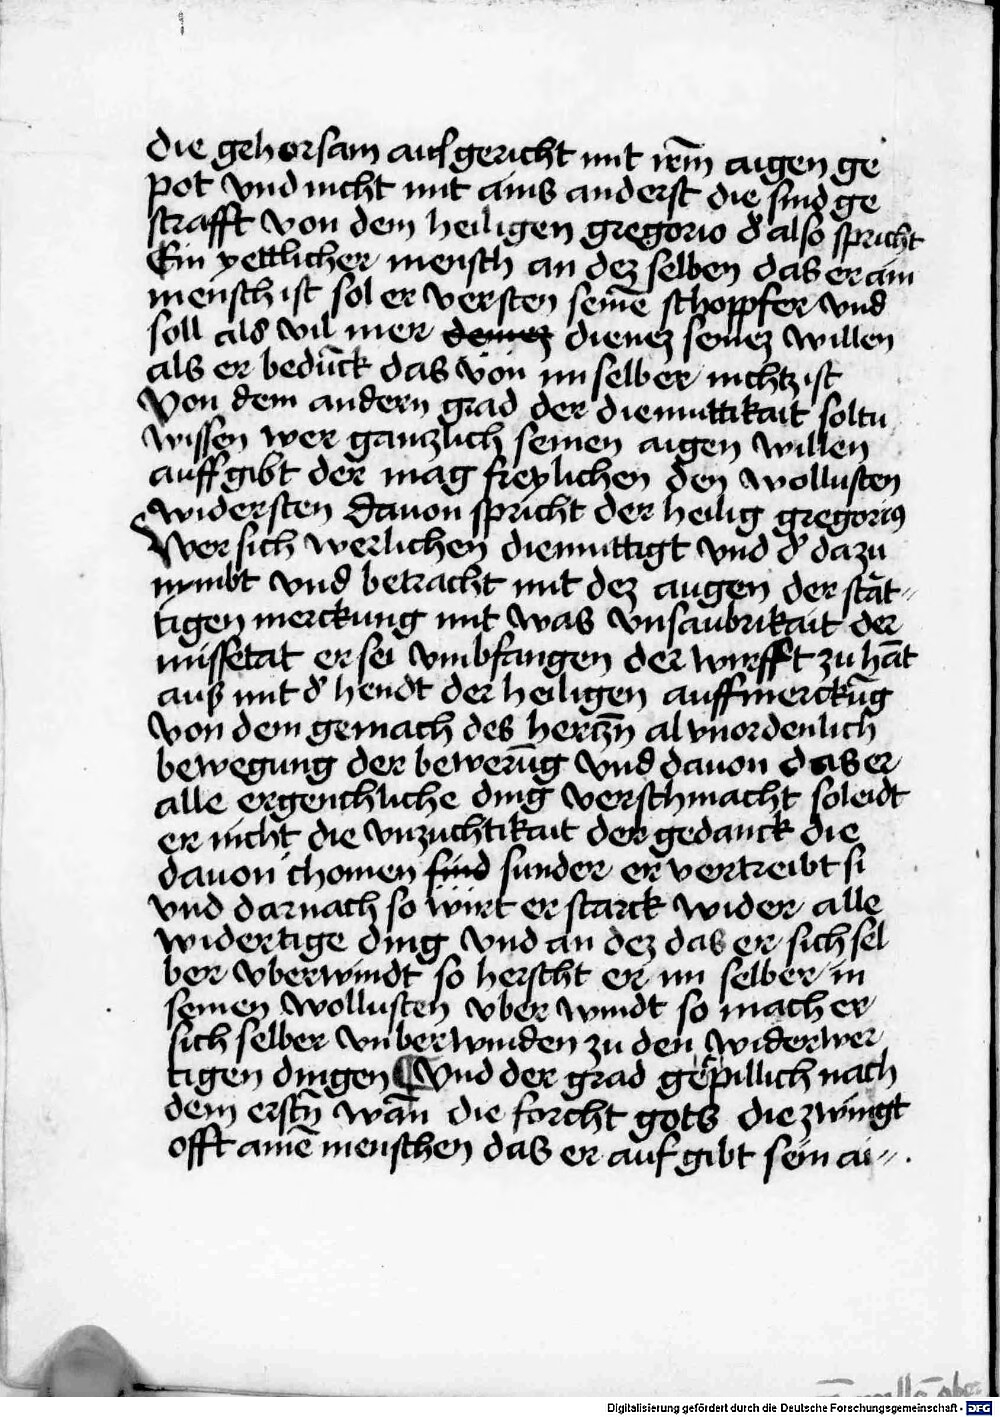 die gehorsam auf gericht mit irem̄ aigen ge
pot vnd nicht mit ains anderst die sind ge
strafft von dem heiligen gregorio d' also spricht
Ein yettlicher mensch an dez selben das er ain
mensch ist sol er versten seinē schoppfer vnd
soll als vil mer dienez seinez willen
als er bedūck das von im selber nichtz ist
Von dem andern grad der diemuttikait soltu
wissen wer gantzlich seinen aigen willen
auff gibt der mag freylichen den wollusten
widersten Dauon spricht der heilig gregorius
Wer sich werlichen diemuttigt vnd d' dazu
nymbt vnd betracht mit dez augen der stät⸗
tigen merckung mit was vnsaubrikait der
missetat er sei vmbfangen der wurfft zu hāt
aus mit d' hendt der heiligen auffmerckūg
von dem gemach des hertzn̄ al vnordenlich
bewegung der bewerūg vnd dauon das er
alle ergenchliche ding verschmacht so leidt
er nicht die vnzuchtikait der gedanck die
dauon chomen sind sunder er vertreibt si
vnd darnach so wirt er starck wider alle
widertige ding vnd an dez das er sich sel
ber vberwindt so herscht er im selber in
seinen wollusten vber windt so mach er
sich selber vnberwinden zu den widerwer
tigen dingen ¶ Vnd der grad get pillich nach
dem erstn̄ wān die forcht gots die zwingt
offt ainē menschen das er auf gibt sein ai⸗
Digitalisierung gefördert durch die Deutsche Forschungsgemeinschaft - DFG